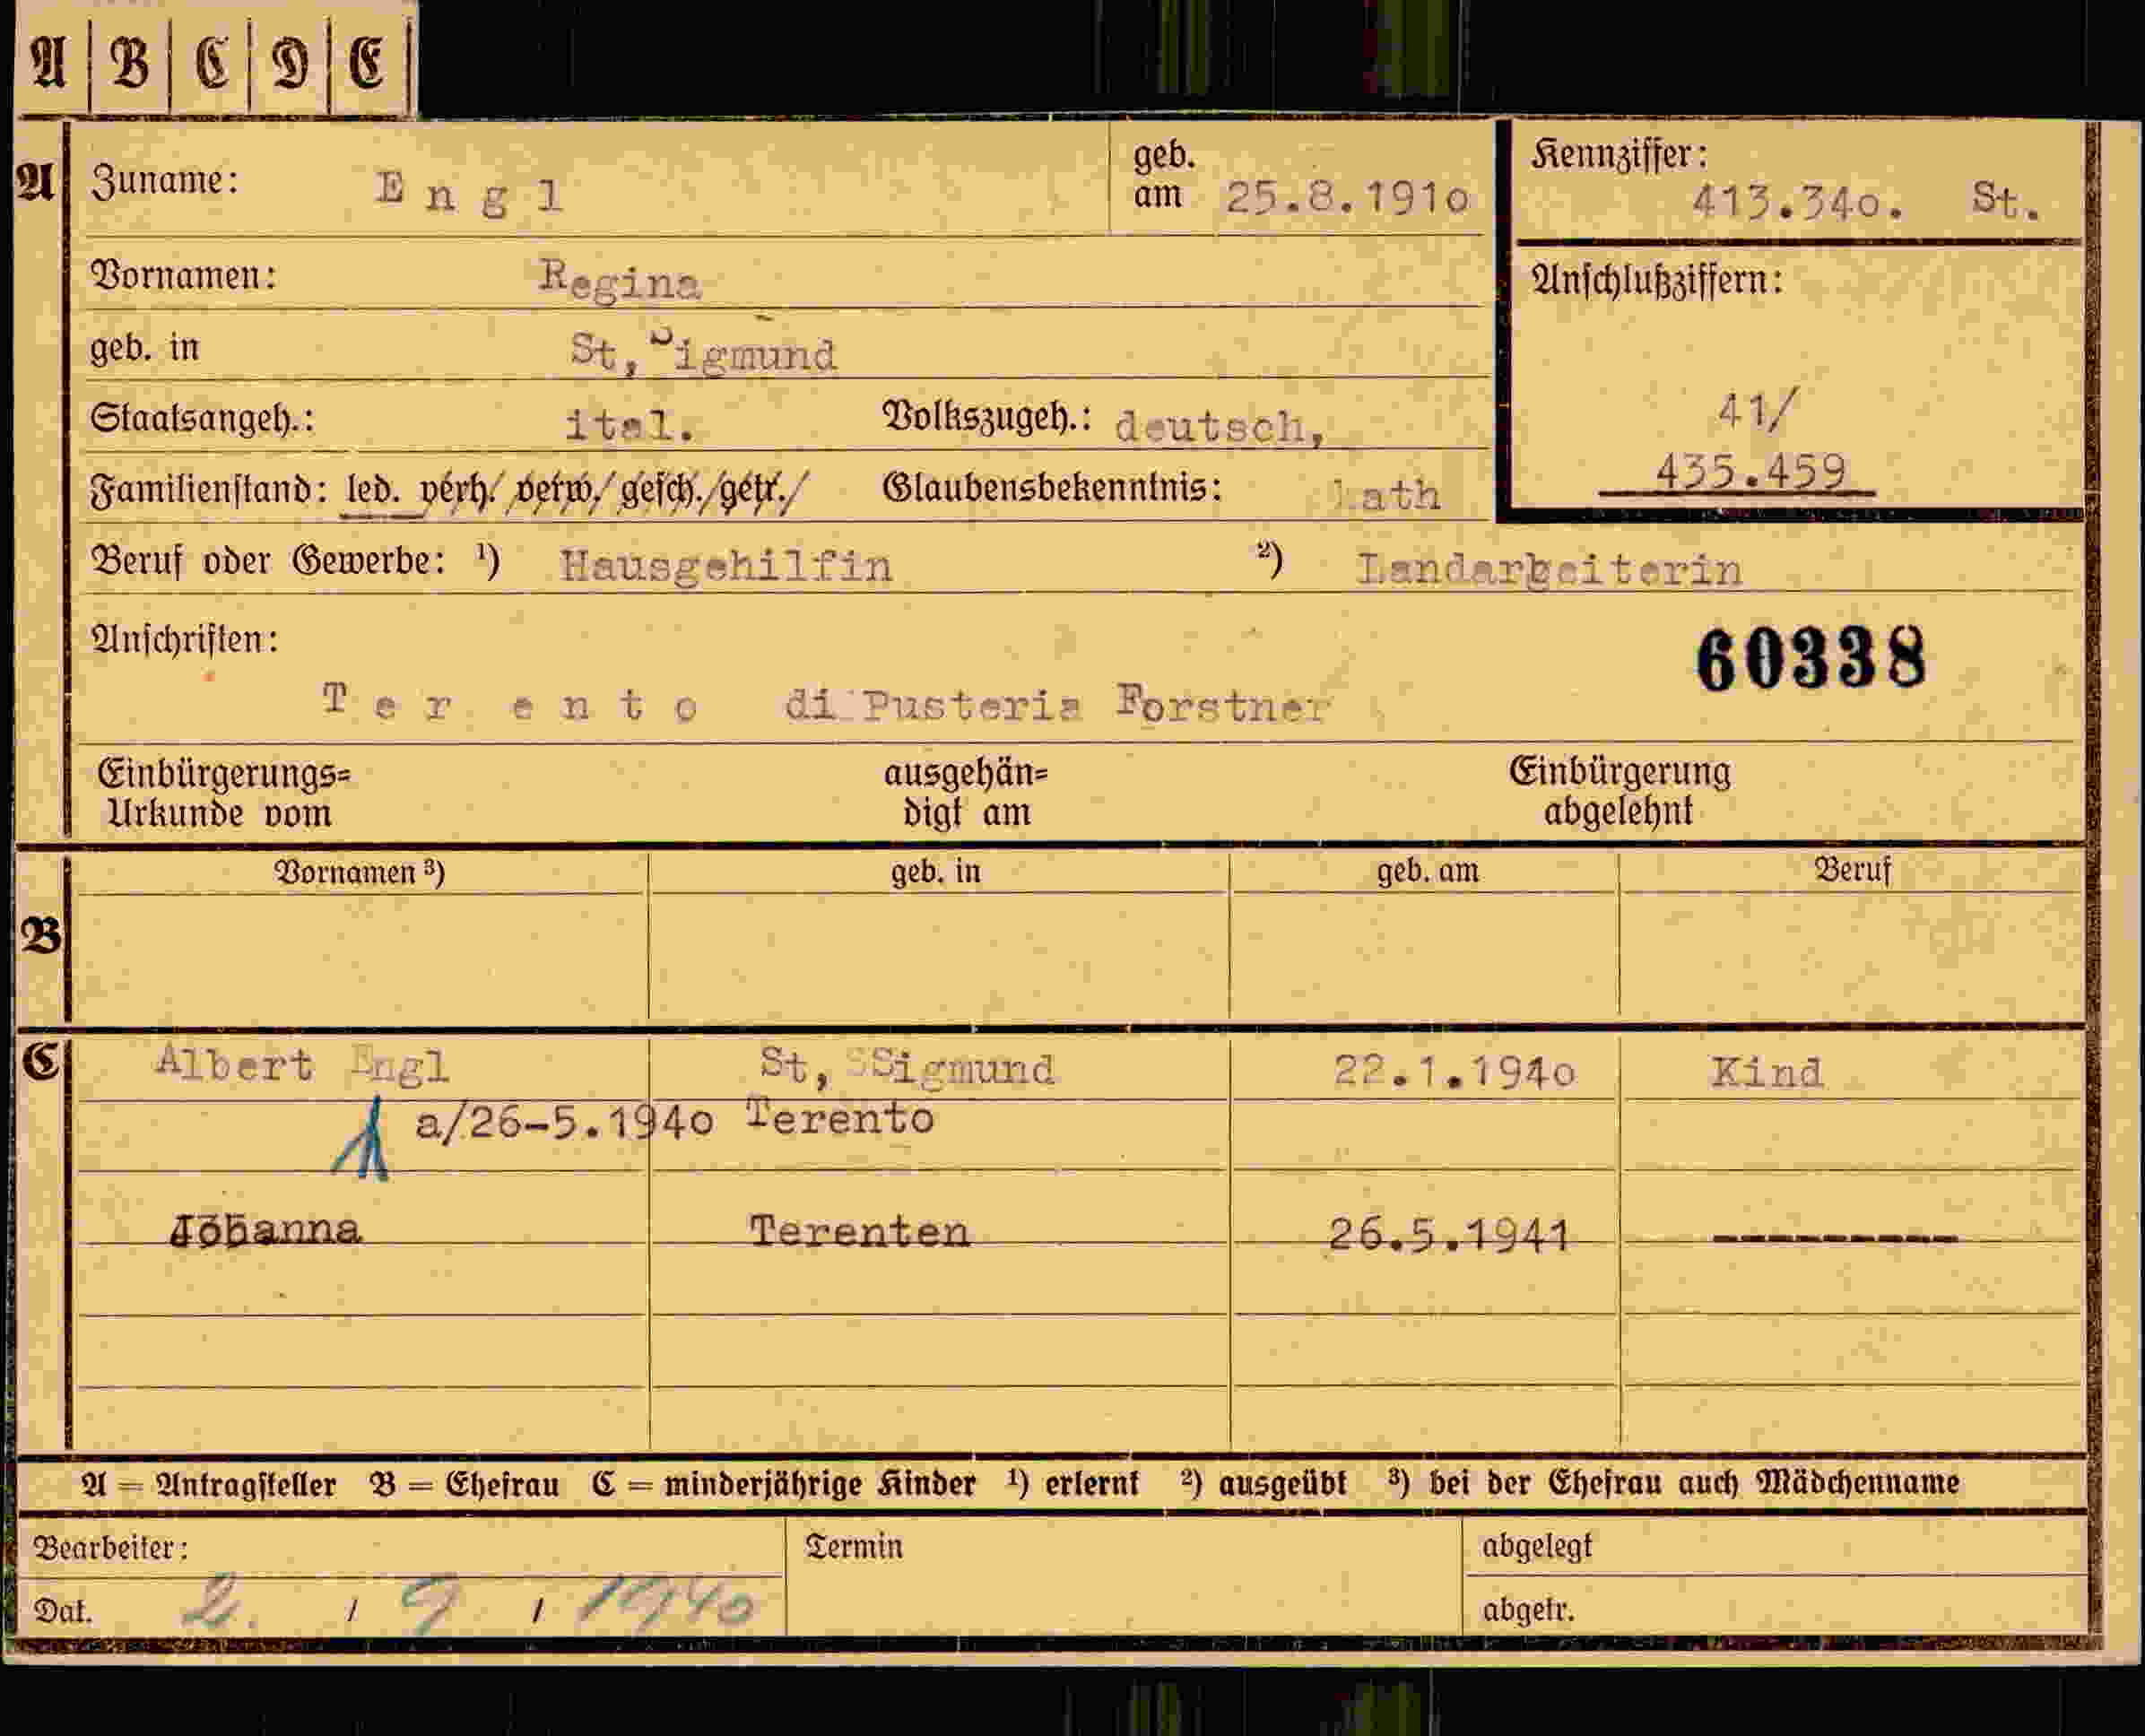 A B C D E
A Zuname: E n g l geb. am 25.8.191o Kennziffer: 413.34o. St.
Vornamen: Regina Anschlußziffern:
geb. in St, Sigmund
Staatsangeh.: ital. Volkszugeh.: deutsch, 41/
Familienstand: led. verh./verw./gesch./getr./ Glaubensbekenntnis: kath 435.459
Beruf oder Gewerbe: ¹) Hausgehilfin ²) Landarbeiterin
Anschriften: 60338
T e r e n t o di Pusteria Forstner
Einbürgerungs= ausgehän= Einbürgerung
Urkunde vom digt am abgelehnt
Vornamen ³) geb. in geb. am Beruf
B
C Albert Engl St, SSigmund 22.1.194o Kind
a/26-5.194o Terento
Johanna Terenten 26.5.1941 ----------
A = Antragsteller B = Ehefrau C = minderjährige Kinder ¹) erlernt ²) ausgeübt ³) bei der Ehefrau auch Mädchenname
Bearbeiter: Termin abgelegt
Dat. 2. / 9 / 1940 abgetr.